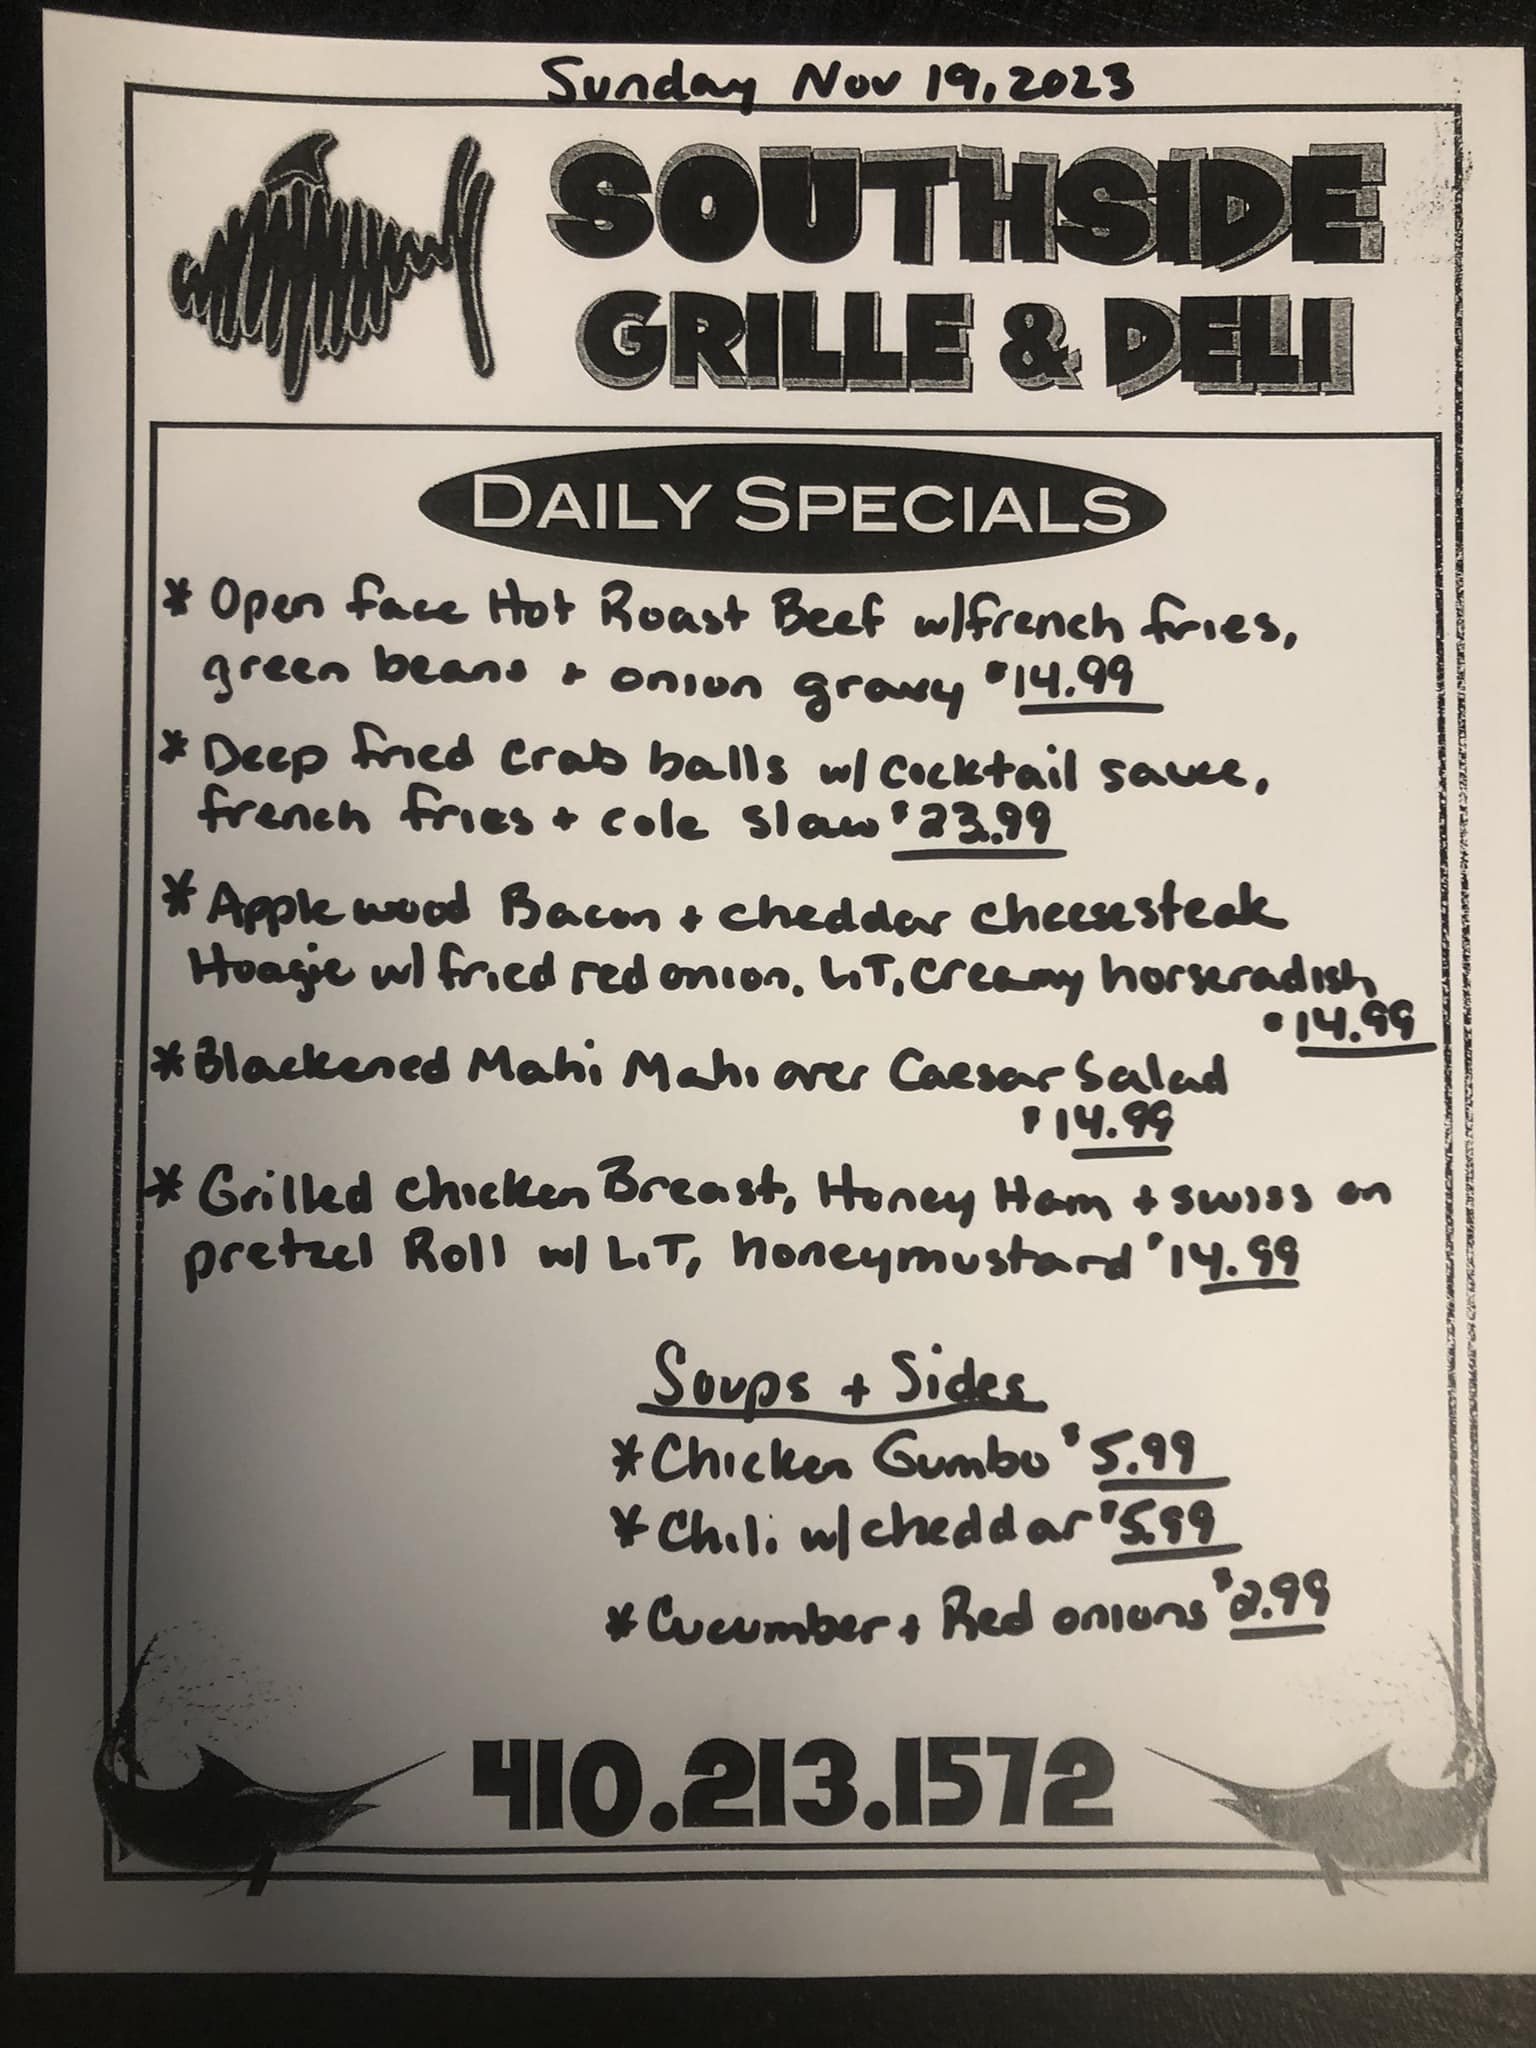 Sunday Nov 19, 2023
SOUTHSIDE
GRILLE & DELI
DAILY SPECIALS
* Open face Hot Roast Beef w/french fries,
green beans + onion gravy $14.99
* Deep fried crab balls w/ cocktail sauce,
french fries + cole slaw $23.99
* Applewood Bacon + cheddar cheesesteak
Hoagie w/ fried red onion, L.T, creamy horseradish
$14.99
* Blackened Mahi Mahi over Caesar Salad
$14.99
* Grilled chicken Breast, Honey Ham + swiss on
pretzel Roll w/ L.T, honeymustard $14.99
Soups + Sides
* Chicken Gumbo $5.99
* Chili w/ cheddar $5.99
* Cucumber + Red onions $2.99
410.213.1572